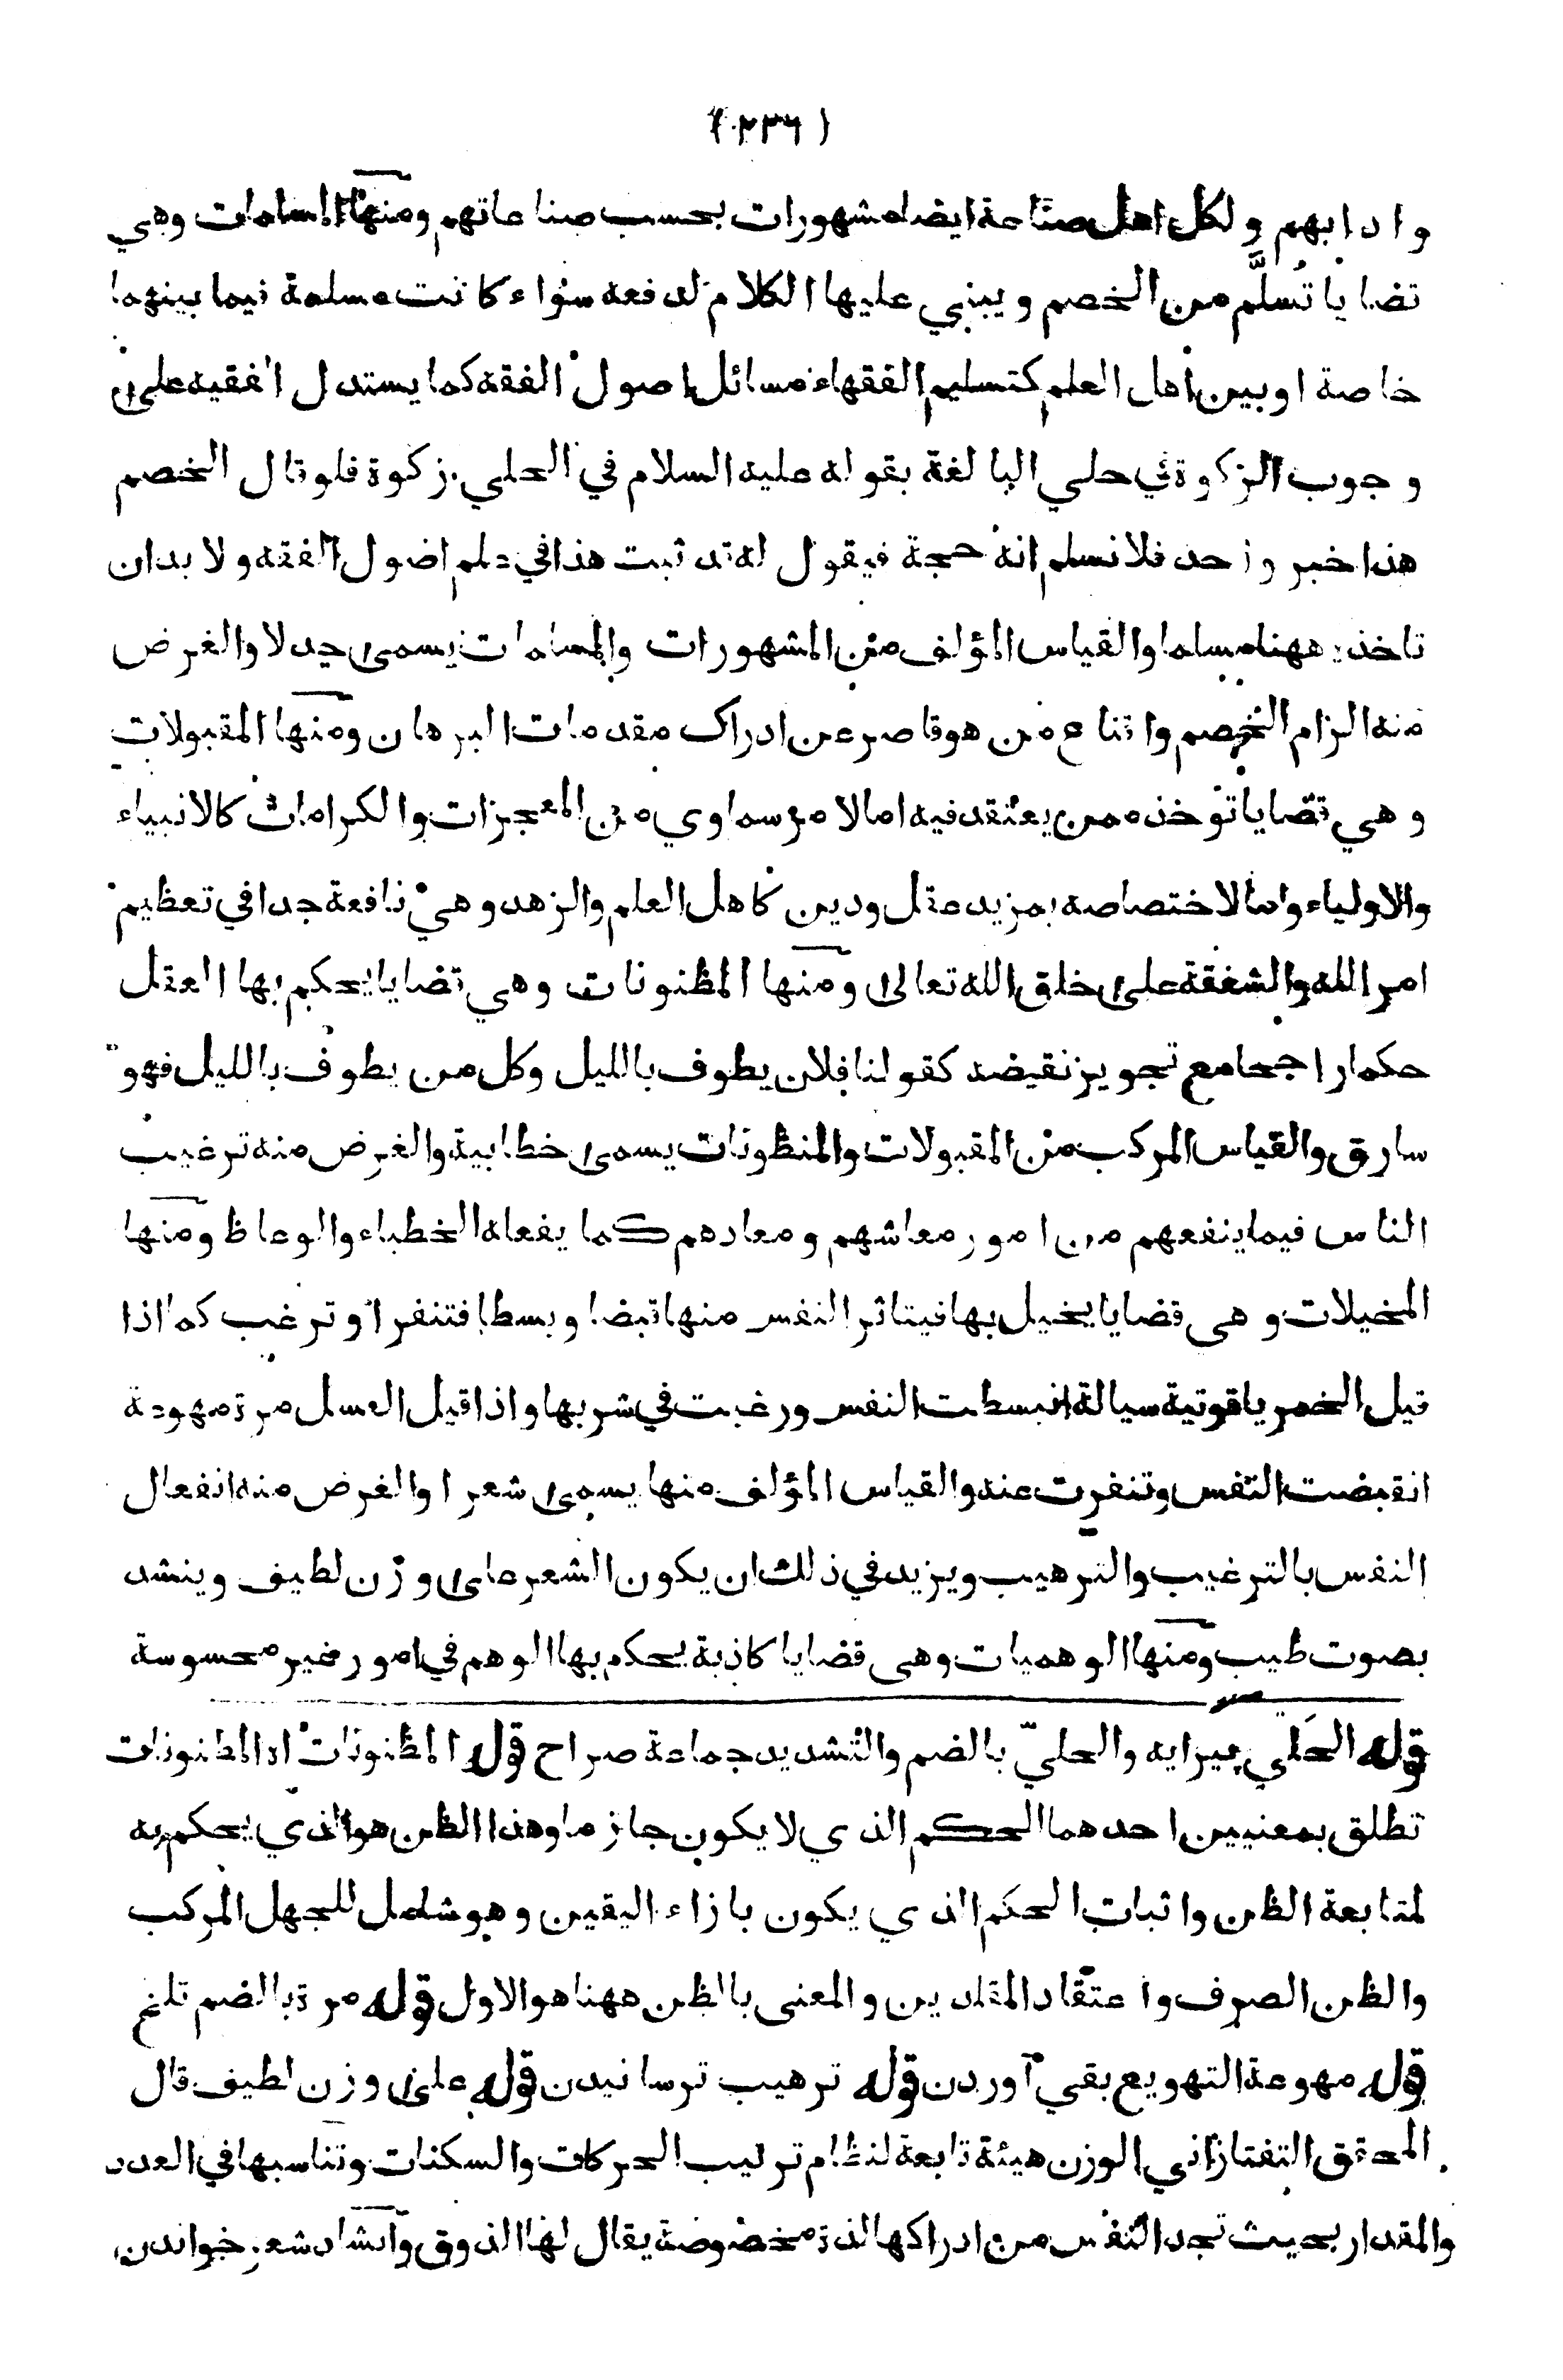 (٢٣٦)
وادابهم ولكل اهل صناعة ايضا مشهورات بحسب صناعاتهم ومنها المسلمات وهي
قضايا تُسلَّم من الخصم ويبني عليها الكلام لدفعه سواء كانت مسلمة فيما بينهما
خاصة او بين اهل العلم كتسليم الفقهاء مسائل اصول الفقه كما يستدل الفقيه على
وجوب الزكوة في حلي البالغة بقوله عليه السلام في الحلي زكوة فلو قال الخصم
هذا خبر واحد فلا نسلم انه حجة فيقول له قد ثبت هذا في علم اصول الفقه ولا بد ان
تاخذه ههنا مسلما والقياس المؤلف من المشهورات والمسلمات يسمى جدلا والغرض
منه الزام الخصم واقناع من هو قاصر عن ادراك مقدمات البرهان ومنها المقبولات
وهي قضايا توخذ ممن يعتقد فيه اما لامر سماوي من المعجزات والكرامات كالانبياء
والاولياء واما لاختصاصه بمزيد عقل ودين كاهل العلم والزهد وهي نافعة جدا في تعظيم
امر الله والشفقة على خلق الله تعالى ومنها المظنونات وهي قضايا يحكم بها العقل
حكما راجحا مع تجويز نقيضه كقولنا فلان يطوف بالليل وكل من يطوف بالليل فهو
سارق والقياس المركب من المقبولات والمنظونات يسمى خطابية والغرض منه ترغيب
الناس فيما ينفعهم من امور معاشهم ومعادهم كما يفعله الخطباء والوعاظ ومنها
المخيلات وهى قضايا يخيل بها فيتاثر النفس منها قبضا وبسطا فتنفر او ترغب كما اذا
قيل الخمر ياقوتية سيالة انبسطت النفس ورغبت في شربها واذا قيل العسل مرة مهوعة
انقبضت النفس وتنفرت عنه والقياس المؤلف منها يسمى شعرا والغرض منه انفعال
النفس بالترغيب والترهيب ويزيد في ذلك ان يكون الشعر على وزن لطيف وينشد
بصوت طيب ومنها الوهميات وهى قضايا كاذبة يحكم بها الوهم في امور غير محسوسة
قوله الحَلْي پيرايه والحليّ بالضم والتشديد جماعة صراح قوله المظنونات اه المظنونات
تطلق بمعنيين احدهما الحكم الذي لا يكون جازما وهذا الظن هو الذي يحكم به
لمتابعة الظن واثبات الحكم الذي يكون بازاء اليقين وهو شامل للجهل المركب
والظن الصرف واعتقاد المقلدين والمعنى بالظن ههنا هو الاول قوله مرة بالضم تلخ
قوله مهوعة التهويع بقي آوردن قوله ترهيب ترسانيدن قوله على وزن لطيف قال
المحقق التفتازاني الوزن هيئة تابعة لنظام ترتيب الحركات والسكنات وتناسبها في العدد
والمقدار بحيث تجد النفس من ادراكها لذة مخصوصة يقال لها الذوق وانشاد شعر خواندن